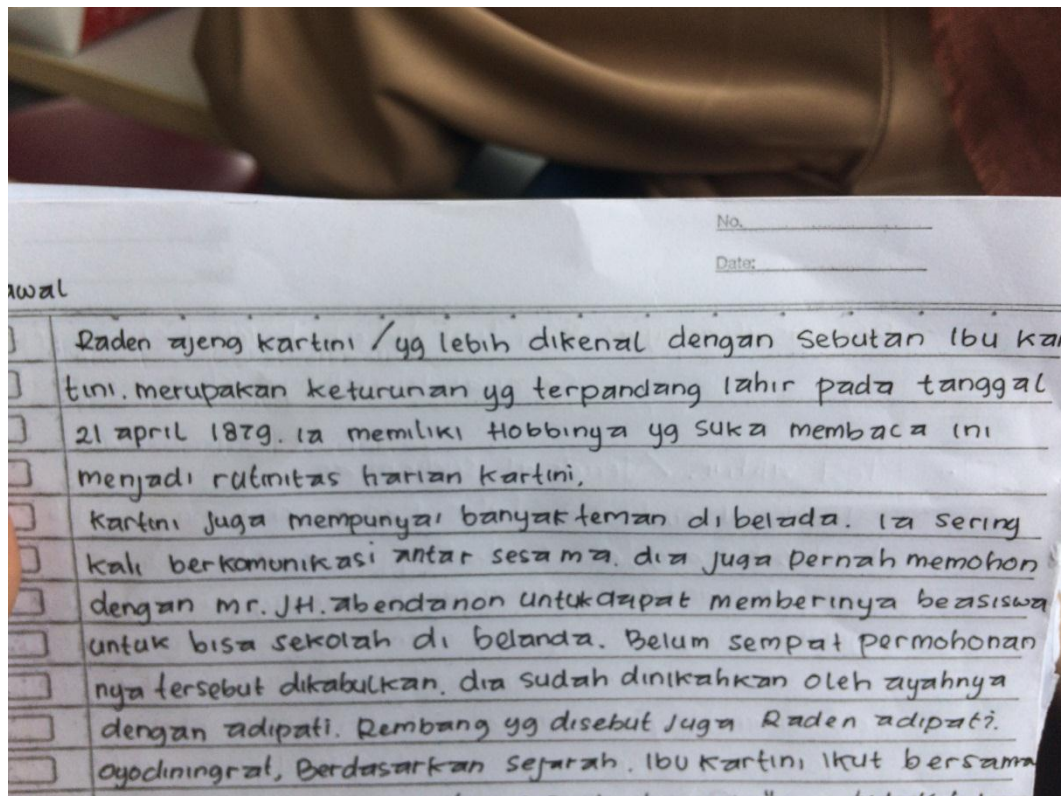 No.
Date:
awal
Raden ajeng kartini / yg lebih dikenal dengan Sebutan Ibu kar
tini. merupakan keturunan yg terpandang lahir pada tanggal
21 april 1879. Ia memiliki Hobbinya yg suka membaca ini
menjadi rutinitas harian kartini,
Kartini Juga mempunyai banyak teman di belada. Ia sering
kali berkomunikasi antar sesama. dia juga Pernah memohon
dengan mr. JH. abendanon untuk dapat memberinya beasiswa
untuk bisa sekolah di belanda. Belum sempat permohonan
nya tersebut dikabulkan. dia sudah dinikahkan oleh ayahnya
dengan adipati. Rembang yg disebut Juga Raden adipati.
oyodiningrat, Berdasarkan sejarah. Ibu Kartini Ikut bersama